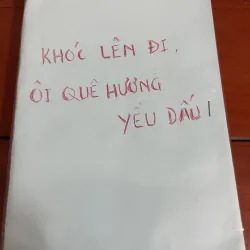 KHÓC LÊN ĐI,
ÔI QUÊ HƯƠNG
YẾU DẤU!